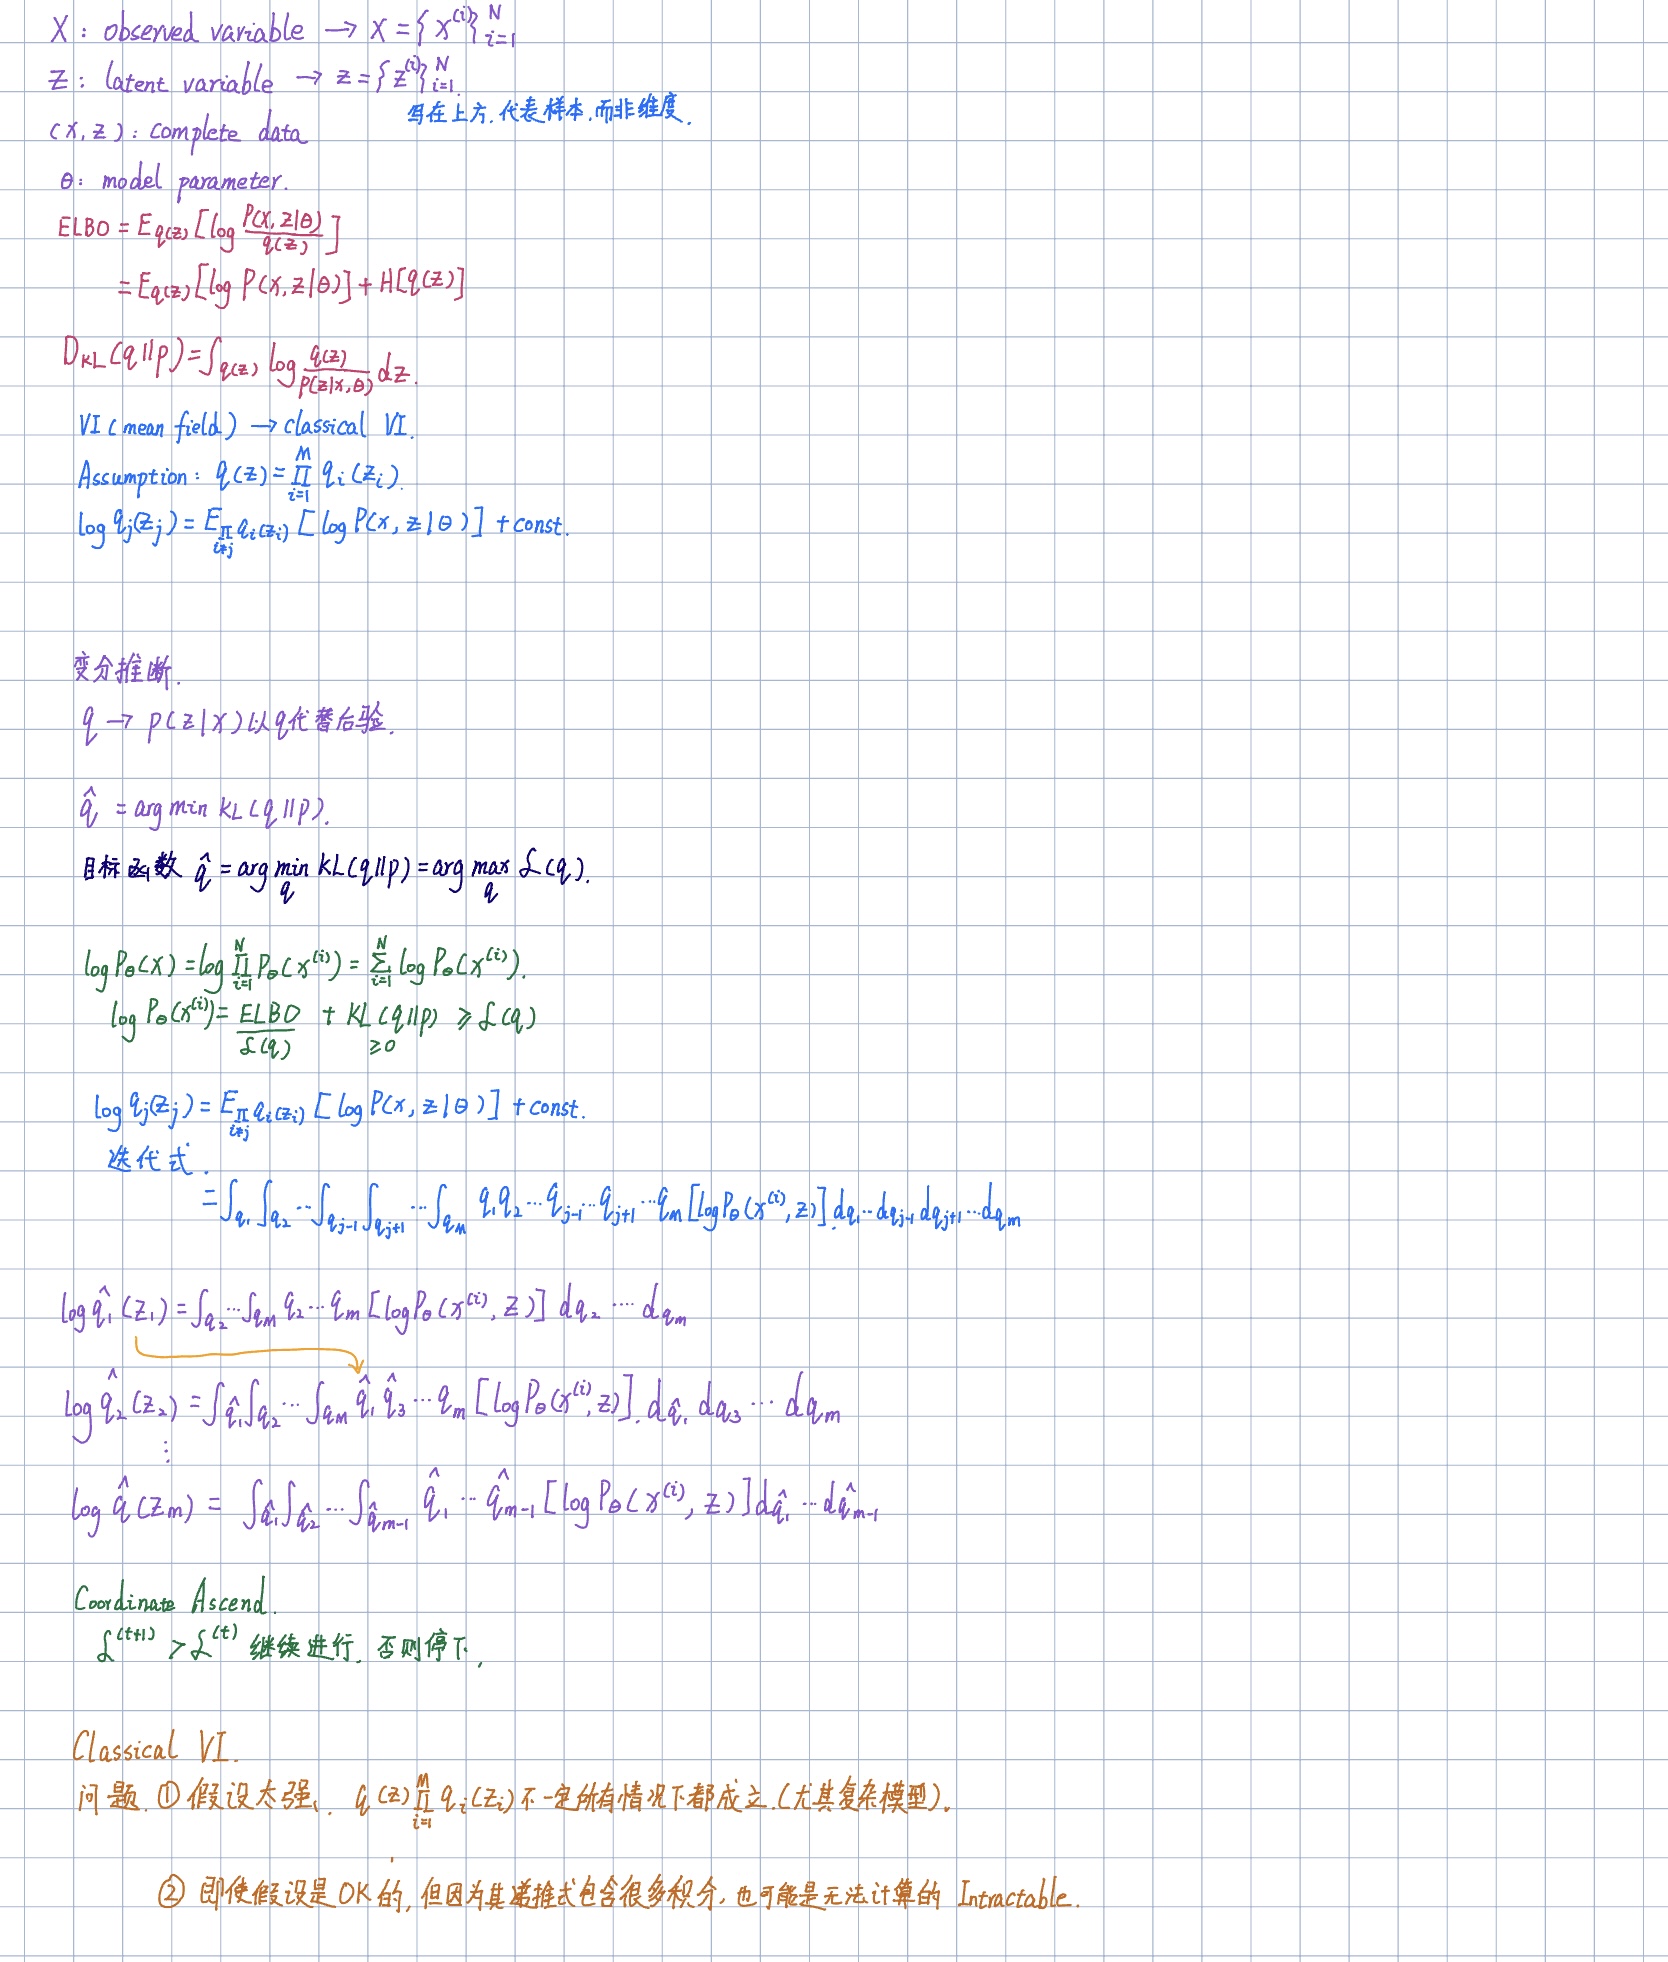 X : observed variable → X = { x^(i) }_{i=1}^N
Z : latent variable → z = { z^(i) }_{i=1}^N
写在上方.代表样本,而非维度.
(X, Z) : complete data
θ: model parameter.
ELBO = E_{q(z)} [log P(X, Z|θ) / q(z)]
= E_{q(z)} [log P(X, Z|θ)] + H[q(z)]
D_{KL}(q||p) = ∫_{q(z)} log q(z) / p(z|x,θ) dz.
VI (mean field) → classical VI.
Assumption: q(z) = ∏_{i=1}^M q_i(z_i).
log q_j(z_j) = E_{∏_{i≠j} q_i(z_i)} [log P(x, z|θ)] + const.
变分推断.
q → p(z|x) 以q代替后验.
q̂ = arg min KL(q||p).
目标 数 q̂ = arg min_q KL(q||p) = arg max_q ℒ(q).
log P_θ(X) = log ∏_{i=1}^N P_θ(x^(i)) = ∑_{i=1}^N log P_θ(x^(i)).
log P_θ(x^(i)) = ELBO + KL(q||p) ≥ ℒ(q)
ℒ(q) ≥0
log q_j(z_j) = E_{∏_{i≠j} q_i(z_i)} [log P(x, z|θ)] + const.
迭代式.
= ∫_{q_1} ∫_{q_2} ⋯ ∫_{q_{j-1}} ∫_{q_{j+1}} ⋯ ∫_{q_M} q_1 q_2 ⋯ q_{j-1} ⋯ q_{j+1} ⋯ q_m [log P_θ(x^(i), z)] dq_1 ⋯ dq_{j-1} dq_{j+1} ⋯ dq_m
log q̂_1(z_1) = ∫_{q_2} ⋯ ∫_{q_m} q_2 ⋯ q_m [log P_θ(x^(i), z)] dq_2 ⋯ dq_m
log q̂_2(z_2) = ∫_{q̂_1} ∫_{q_2} ⋯ ∫_{q_m} q̂_1 q̂_3 ⋯ q_m [log P_θ(x^(i), z)]. dq̂_1 dq_3 ⋯ dq_m
⋮
log q̂(z_m) = ∫_{q̂_1} ∫_{q̂_2} ⋯ ∫_{q̂_{m-1}} q̂_1 ⋯ q̂_{m-1} [log P_θ(x^(i), z)] dq̂_1 ⋯ dq̂_{m-1}
Coordinate Ascend.
ℒ^(t+1) > ℒ^(t) 继续进行, 否则停下,
Classical VI.
问题. ① 假设太强. q(z) ∏_{i=1}^M q_i(z_i) 不一定所有情况下都成立.(尤其复杂模型).
② 即使假设是OK的, 但因为其递推式包含很多积分, 也可能是无法计算的 Intractable.